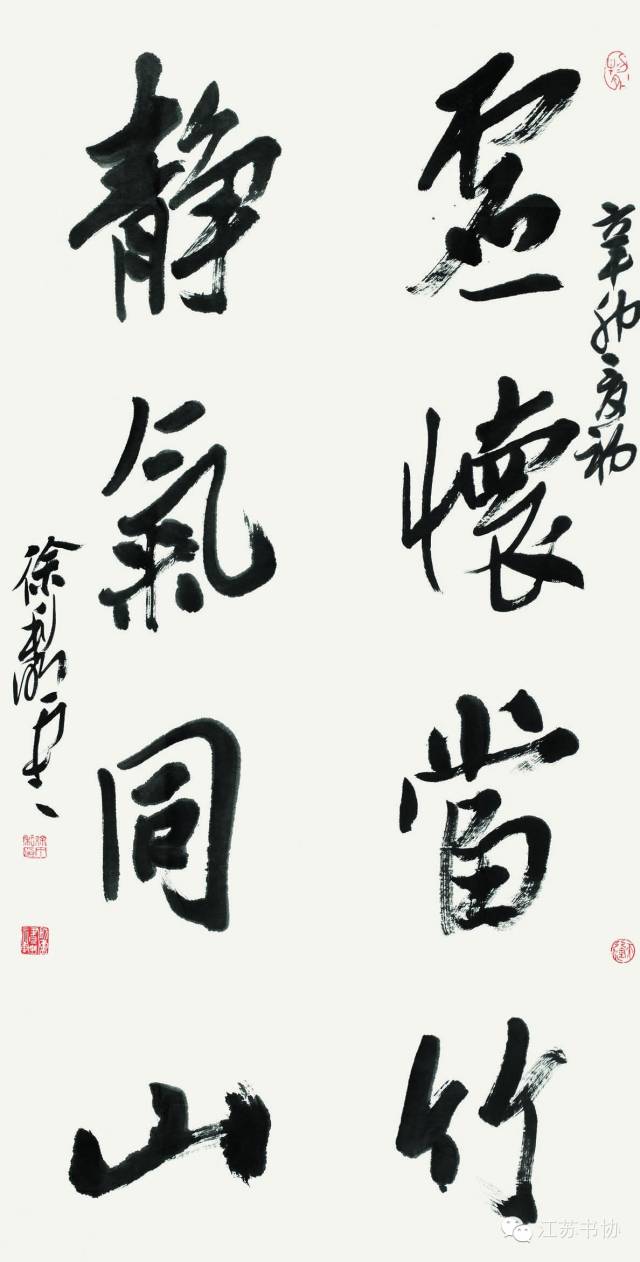 辛卯夏初
虚懷當竹
静氣同山
徐利
江苏书协